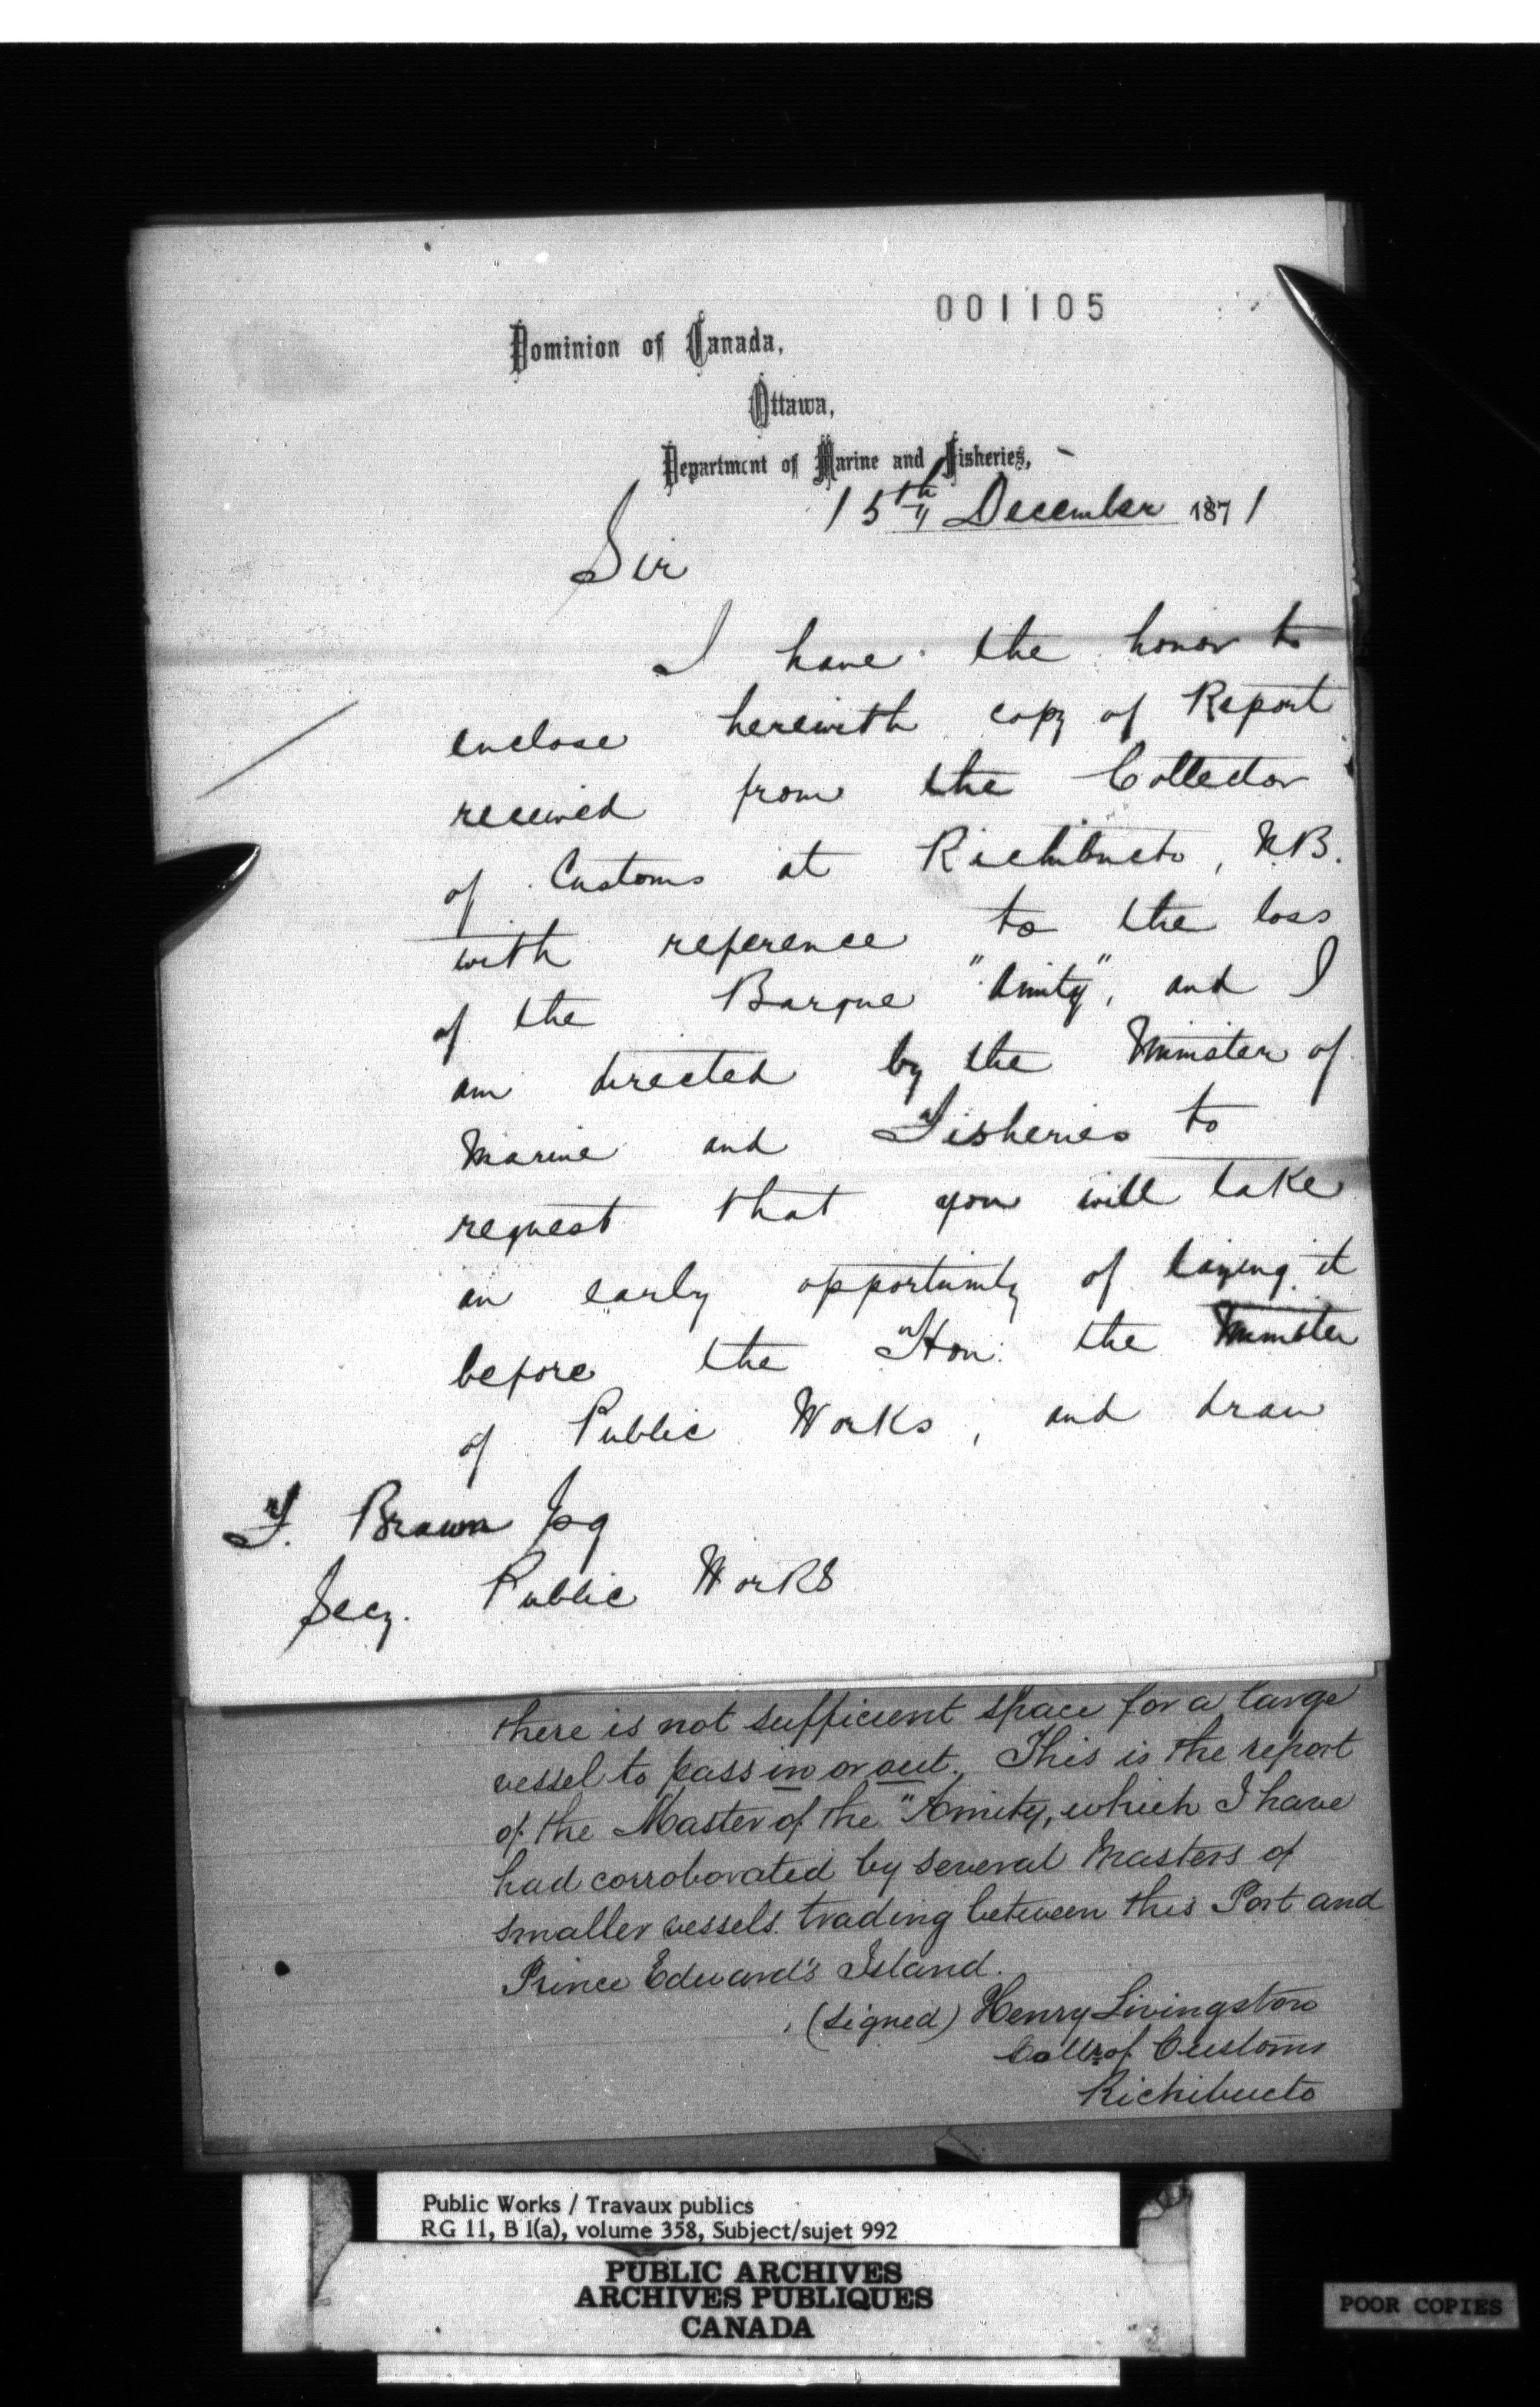 001105
Dominion of Canada,
Ottawa,
Department of Marine and Fisheries,
15th December 1871
Sir
I have the honor to
enclose herewith copy of Report
received from the Collector
of Customs at Richibucto, N.B.
with reference to the loss
of the Barque "Amity", and I
am directed by the Minister of
Marine and Fisheries to
request that you will take
an early opportunity of laying it
before the Hon. the Minister
of Public Works, and draw
F. Braun Esq
Secy. Public Works
there is not sufficient space for a large
vessel to pass in or out. This is the report
of the Master of the "Amity, which I have
had corroborated by several Masters of
smaller vessels trading between this Port and
Prince Edward's Island.
(signed) Henry Livingston
Collr. of Customs
Richibucto
Public Works / Travaux publics
RG 11, B 1(a), volume 358, Subject/sujet 992
PUBLIC ARCHIVES
ARCHIVES PUBLIQUES
CANADA
POOR COPIES